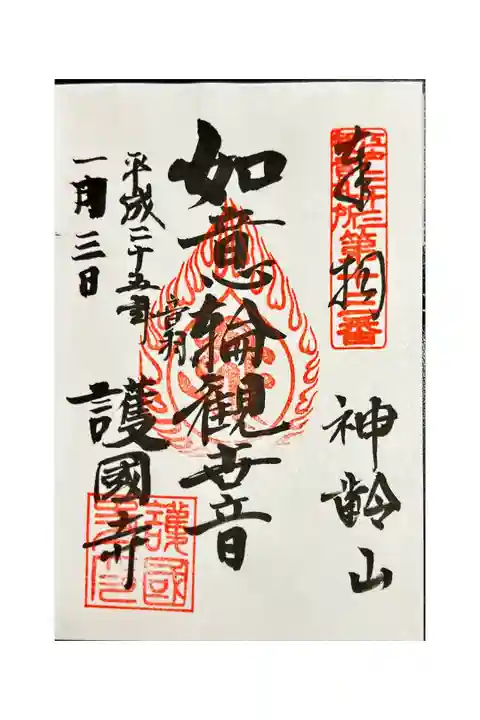 奉拝
江戸三十三所第十三番
神齢山
如意輪観世音
音羽
護國寺
平成二十五年
一月三日
護國